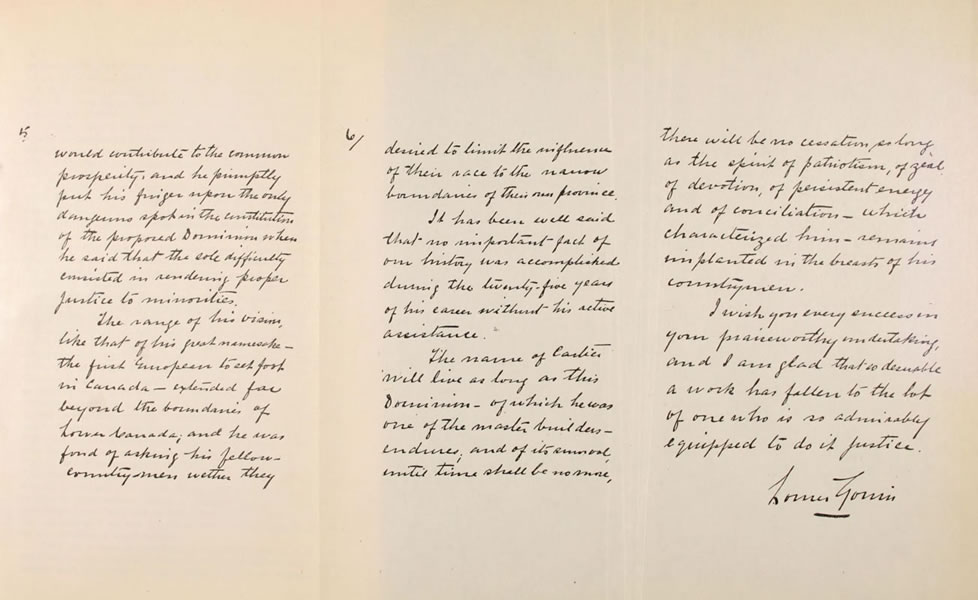 5
would contribute to the common
prosperity, and he promptly
put his finger upon the only
dangerous spot in the constitution
of the proposed Dominion when
he said that the sole difficulty
consisted in rendering proper
justice to minorities.
The range of his vision,
like that of his great namesake —
the first European to set foot
in Canada — extended far
beyond the boundaries of
Lower Canada; and he was
fond of asking his fellow-
countrymen wether they
6/
desired to limit the influence
of their race to the narrow
boundaries of their own province.
It has been well said
that no important fact of
our history was accomplished
during the twenty-five years
of his career without his active
assistance.
The name of Cartier
will live as long as this
Dominion — of which he was
one of the master builders —
endures, and of its survival,
until time shall be no more,
there will be no cessation, so long
as the spirit of patriotism, of zeal,
of devotion, of persistent energy
and of conciliation — which
characterized him — remains
implanted in the breasts of his
countrymen.
I wish you every success in
your praiseworthy undertaking,
and I am glad that so desirable
a work has fallen to the lot
of one who is so admirably
equipped to do it justice.
Lomer Gouin